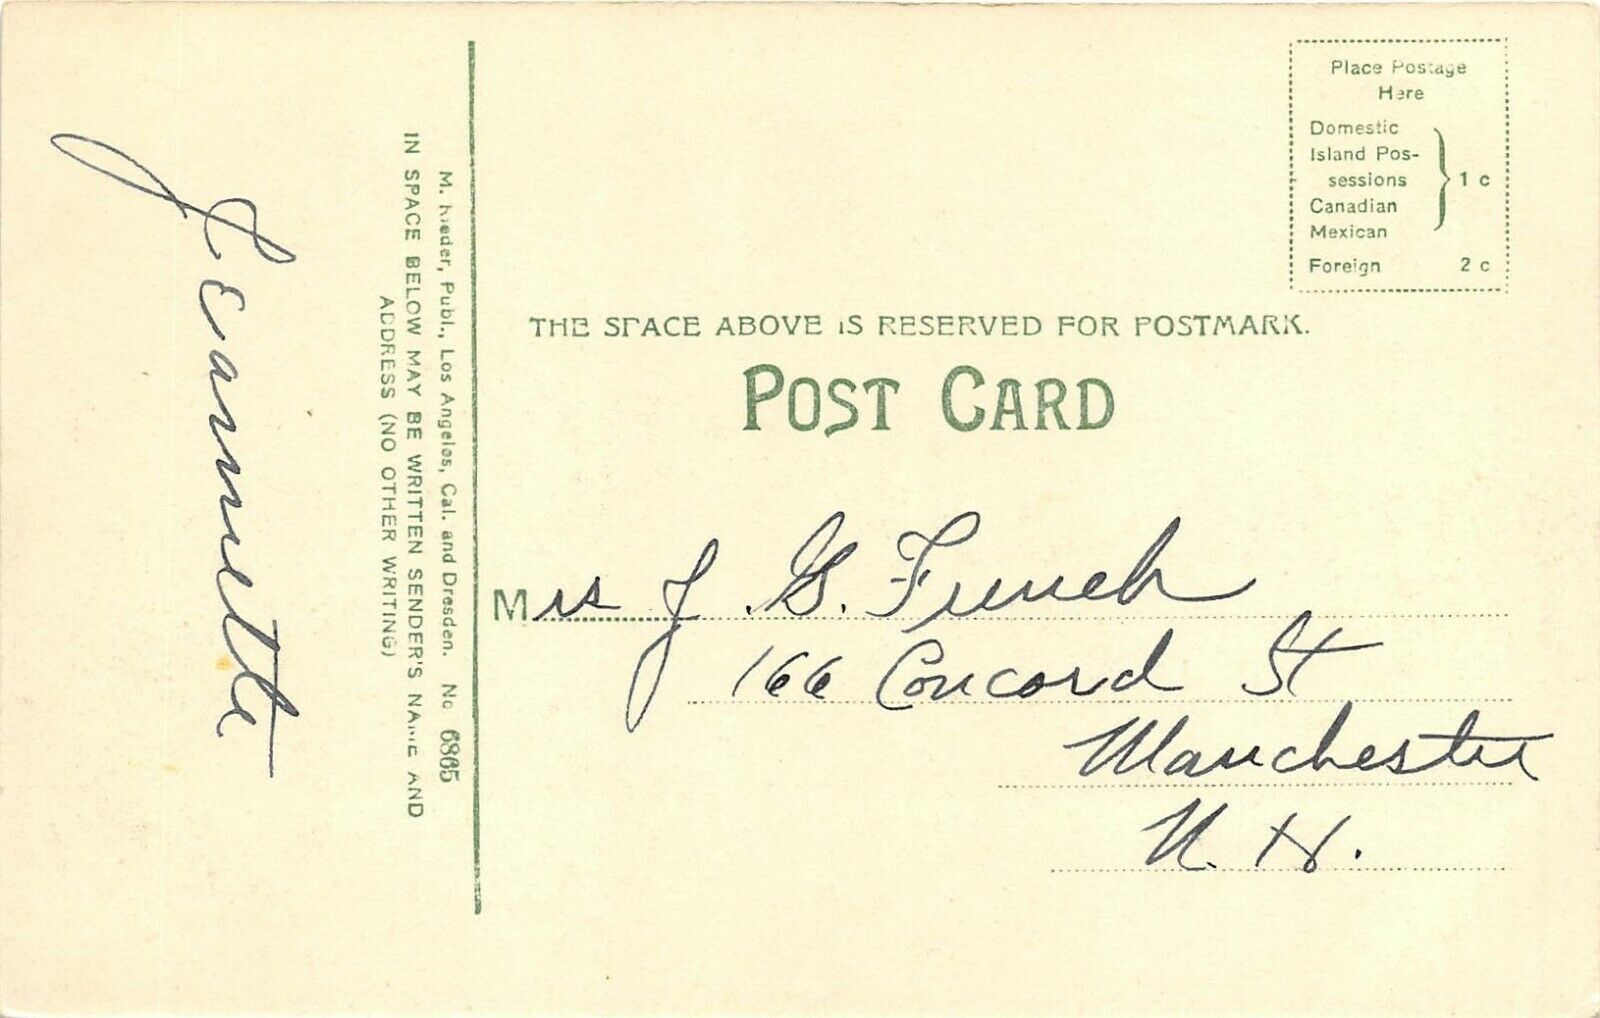 Jeannette
M. Rieder, Publ., Los Angeles, Cal. and Dresden. No 6865
IN SPACE BELOW MAY BE WRITTEN SENDER'S NAME AND
ADDRESS (NO OTHER WRITING)
Place Postage
Here
Domestic
Island Pos-
sessions
Canadian
Mexican
1 c
Foreign 2 c
THE SPACE ABOVE IS RESERVED FOR POSTMARK.
POST CARD
Mrs J. G. French
166 Concord St
Manchester
N. H.